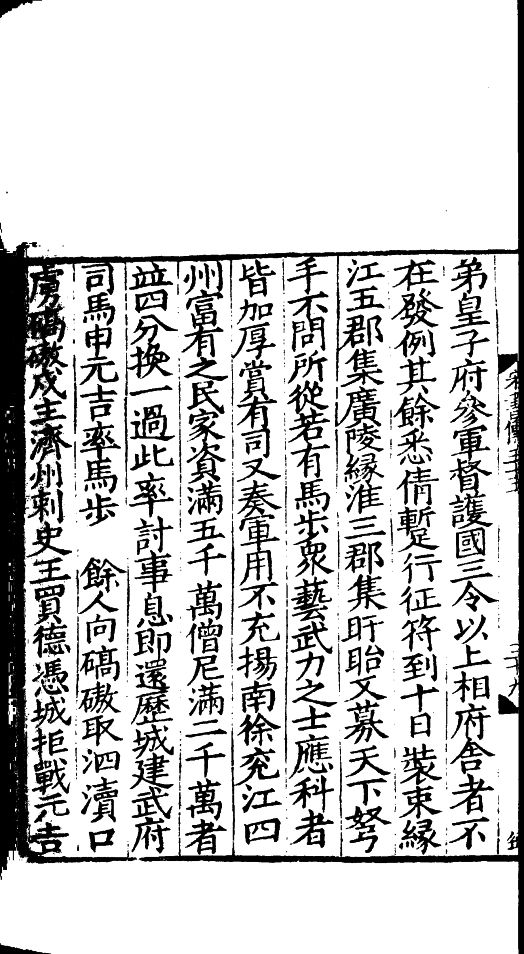 弟皇子府參軍督護國三令以上相府舍者不
在發例其餘悉倩蹔行征符到十日裝束緣
江五郡集廣陵緣淮三郡集盱眙又募天下弩
手不問所從若有馬步衆藝武力之士應科者
皆加厚賞有司又奏軍用不充揚南徐兖江四
州富有之民家資滿五千萬僧尼滿二千萬者
並四分換一過此率討事息即還歷城建武府
司馬申元吉率馬步 餘人向碻磝取泗瀆口
虜碻磝戍主濟州刺史王買德憑城拒戰元吉